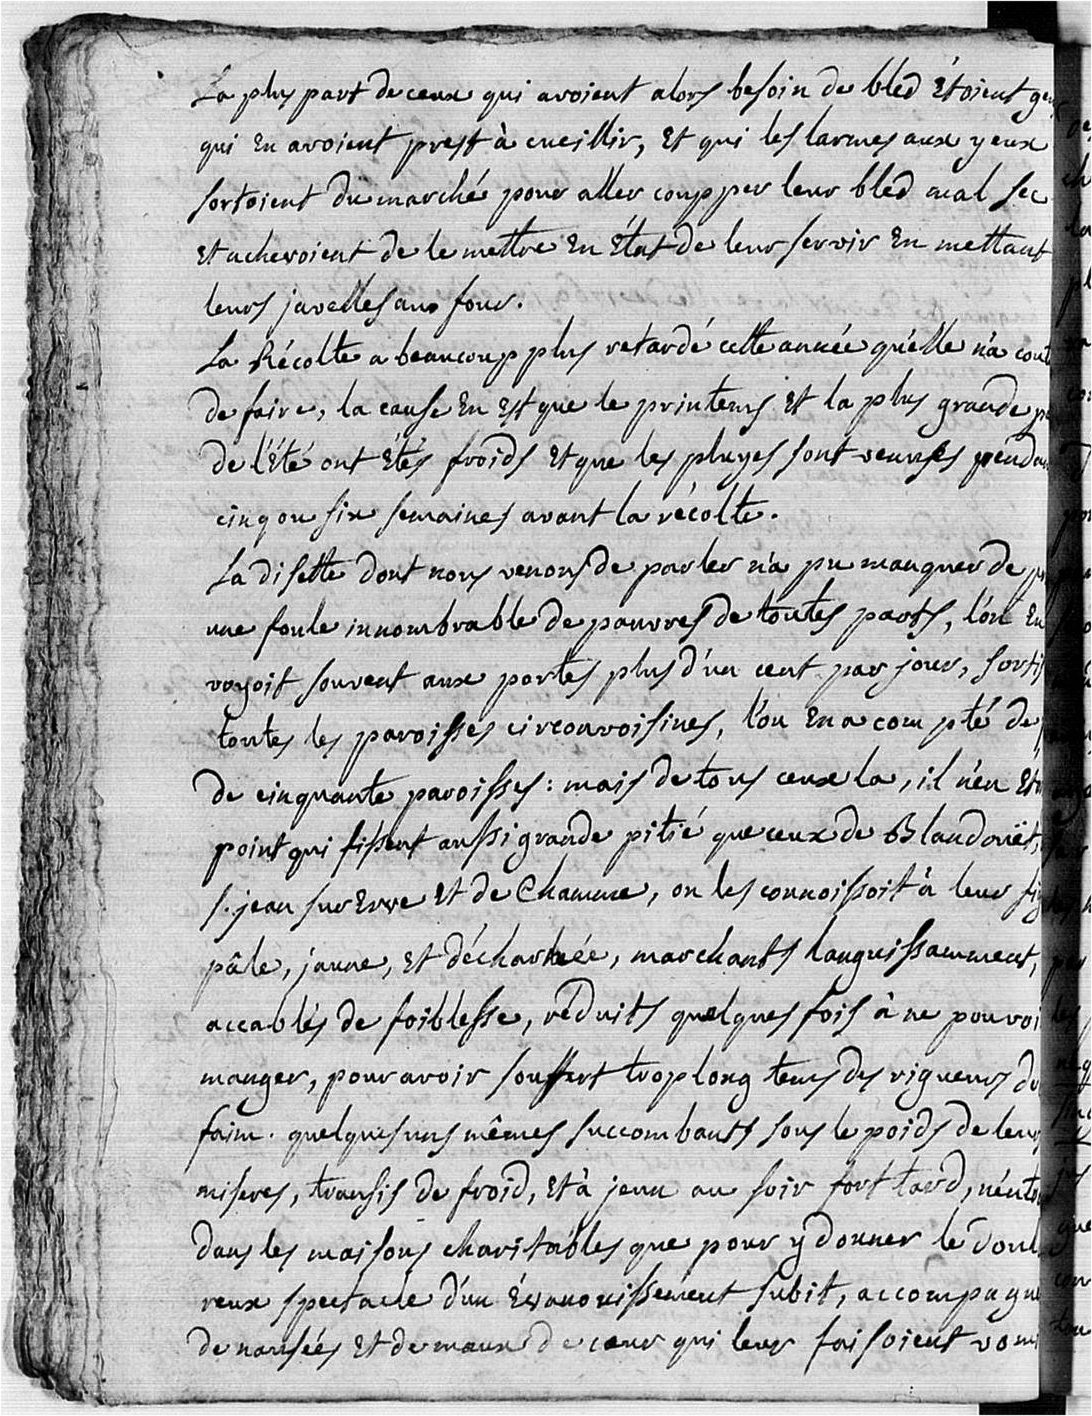 La plus part de ceux qui avoient alors besoin de bled étoient gens
qui en avoient prest à cueillir, et qui les larmes aux yeux
sortoient du marché pour aller coupper leur bled mal sec
et achevoient de le mettre en état de leur servir en mettant
leurs javelles au four.
La Récolte a beaucoup plus retardé cette année qu'elle n'a cout
de faire, la cause en est que le printems et la plus grande p
de l'été ont étés froids et que les pluyes sont venuses penda
cinq ou six semaines avant la récolte.
La disette dont nous venons de parler n'a pu manquer de p
une foule innombrable de pauvres de toutes parts, l'on en
voyoit souvent aux portes plus d'un cent par jour, sortis
toutes les paroisses circonvoisines, l'on en a compté de
de cinquante paroisses : mais de tous ceux la, il n'en ét
point qui fissent aussi grande pitié que ceux de Blandouët,
s. jean sur Erve et de Chamme, on les connoissoit à leur fig
pâle, jaune, et décharnée, marchants languissamment,
accablés de foiblesse, réduits quelques fois à ne pouvoi
manger, pour avoir souffert trop long tems des rigueurs d
faim. quelques uns mêmes succombants sous le poids de leurs
miseres, transis de froid, et à jeun au soir fort tard, n'ent
dans les maisons charitables que pour y donner le doul
reux spectacle d'un évanouissement subit, accompagn
de nausées et de maux de cœur qui leur faisoient vomi